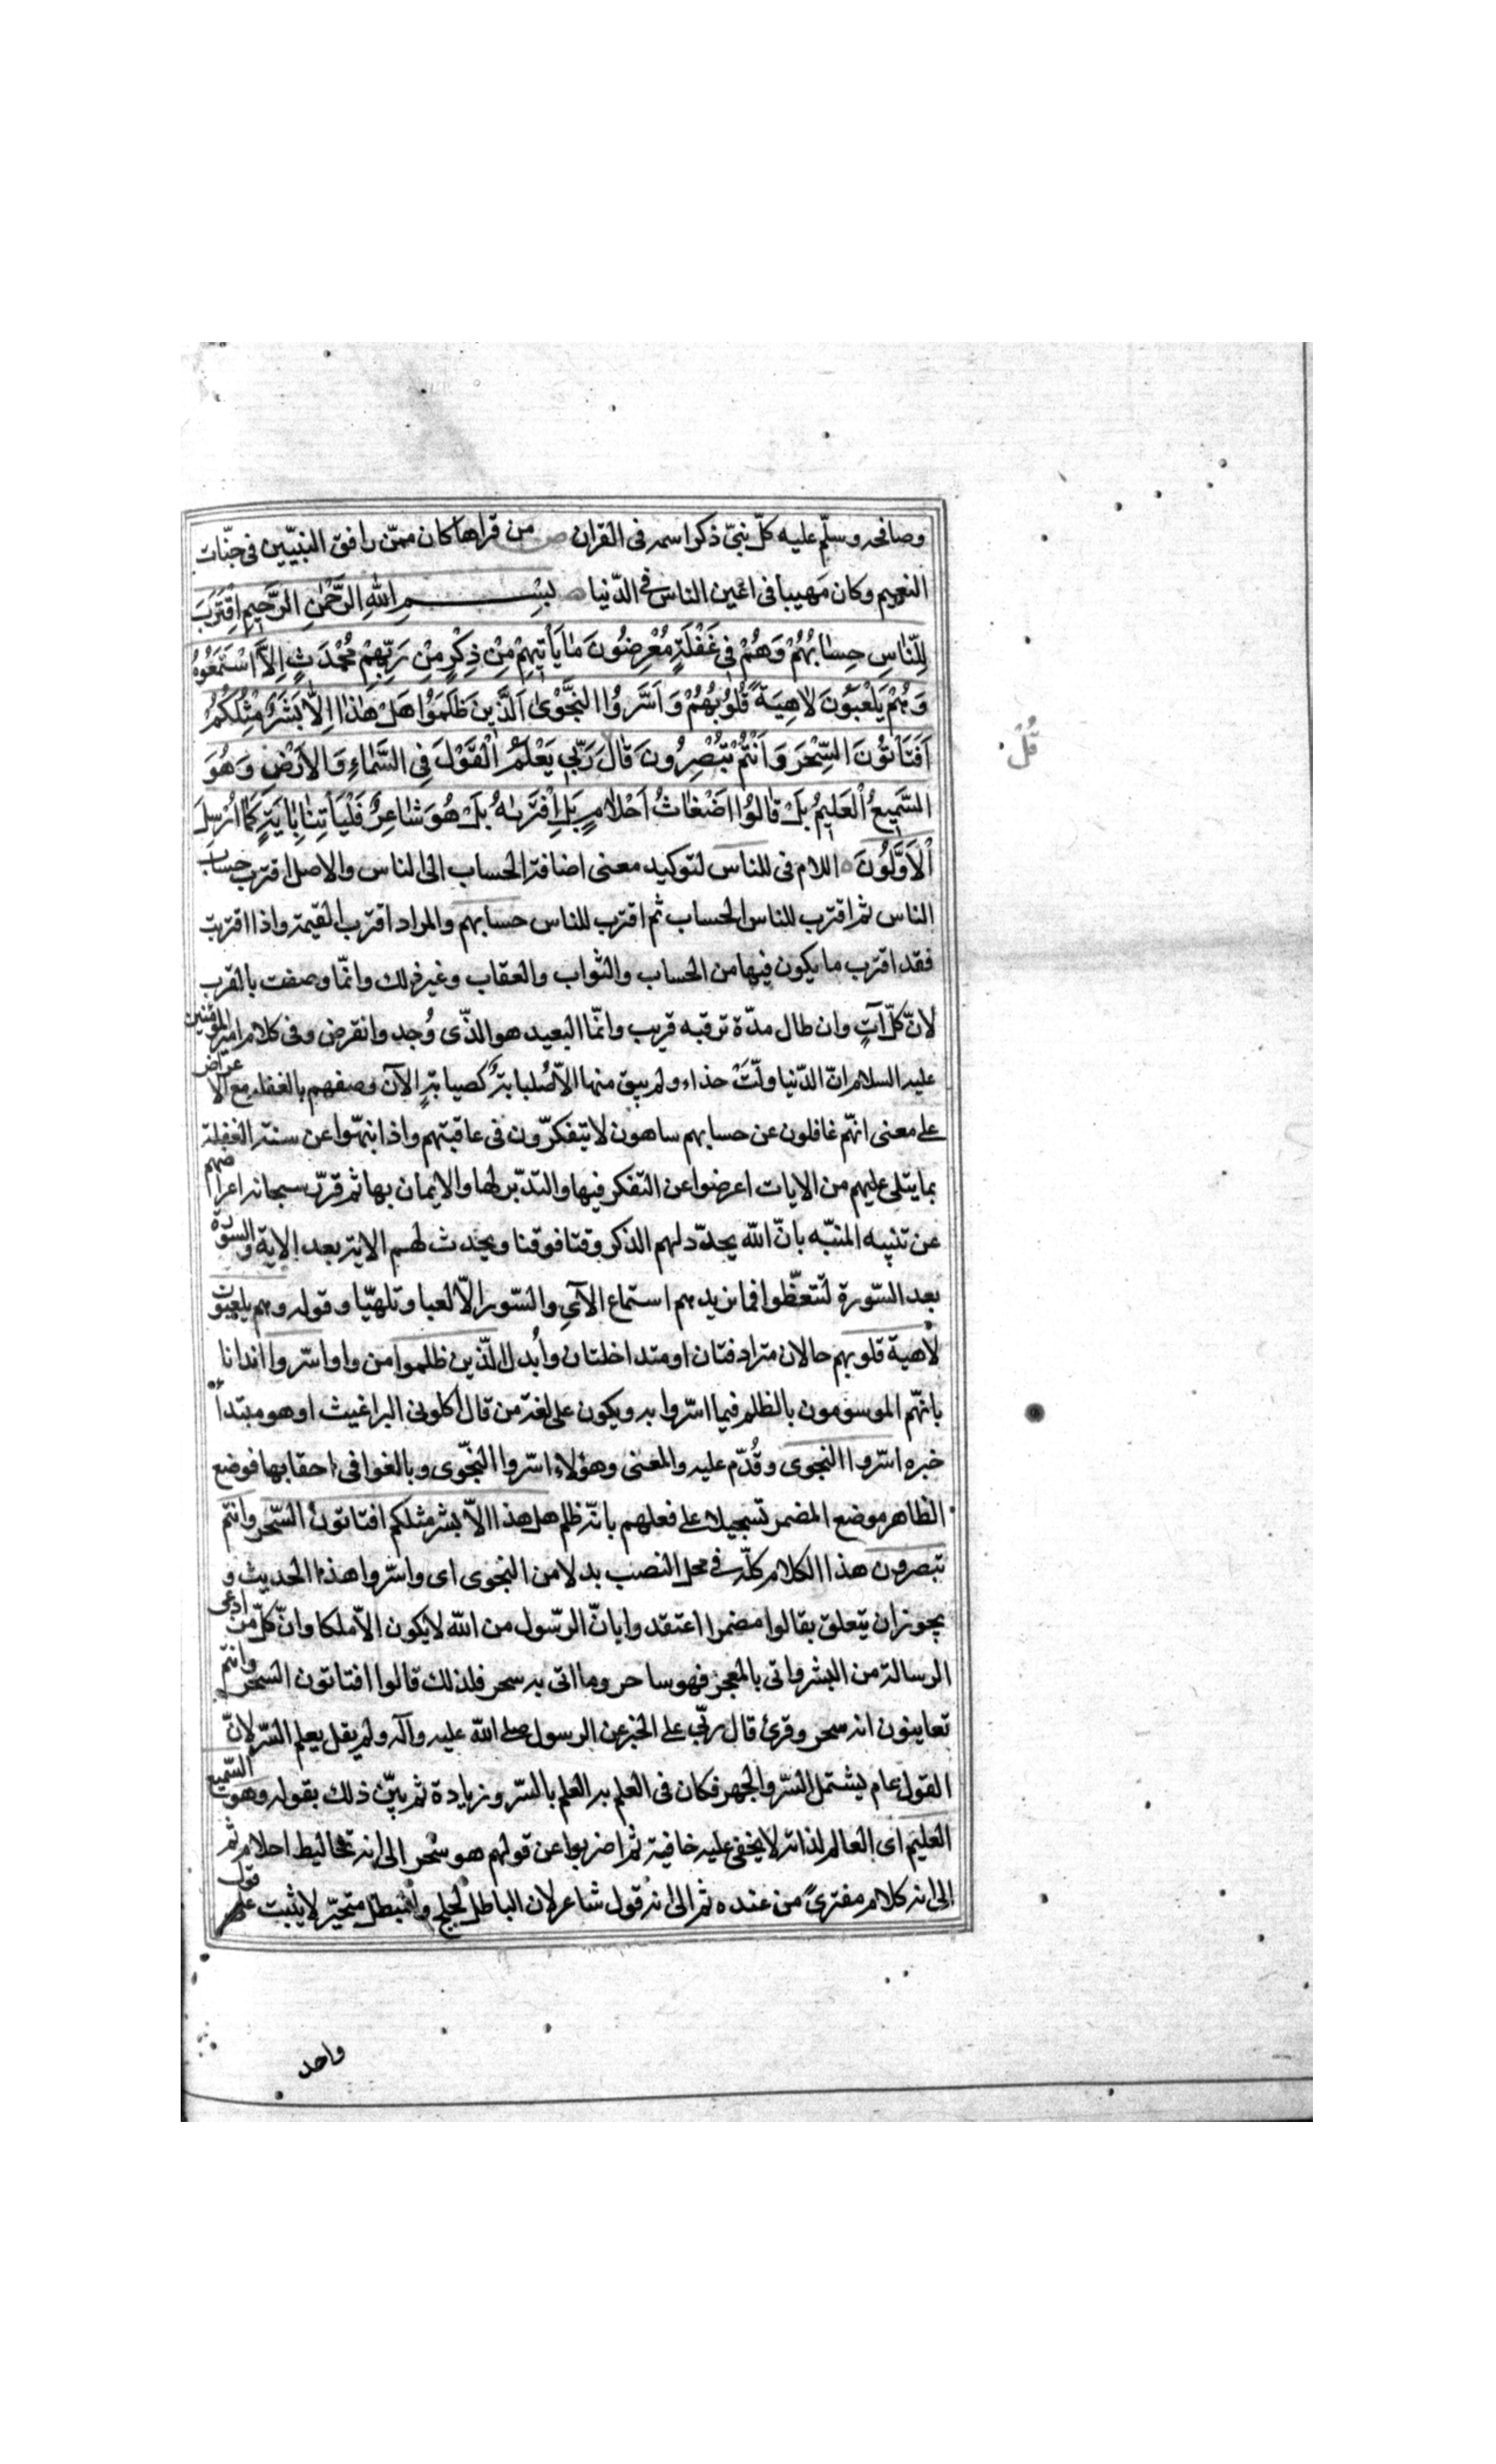 وصافحه وسلّم عليه كلّ نبىّ ذكر اسمه فى القران ص من قراها كان ممّن رافق النبيّين فى جنّات
النعيم وكان مهيبا فى اعين الناس فى الدّنيا بِسْمِ اللّٰهِ الرَّحْمٰنِ الرَّحيمِ اِقْتَرَبَ
لِلنّٰاسِ حِسٰابُهُمْ وَهُمْ فِى غَفْلَةٍ مُعْرِضُونَ مٰا يَأْتِيهِمْ مِنْ ذِكْرٍ مِنْ رَبِّهِمْ مُحْدَثٍ اِلاَّ اسْتَمَعُوهُ
وَهُمْ يَلْعَبُونَ لٰاهِيَةً قُلُوبُهُمْ وَاَسَرُّوا النَّجْوَىٰ الَّذِينَ ظَلَمُوا هَلْ هٰذٰا اِلاّٰ بَشَرٌ مِثْلُكُمْ
اَفَتَأْتُونَ السِّحْرَ وَاَنْتُمْ تُبْصِرُونَ قٰالَ رَبِّى يَعْلَمُ الْقَوْلَ فِى السَّمٰاءِ وَالْاَرْضِ وَهُوَ
السَّمِيعُ الْعَلِيمُ بَلْ قٰالُوا اَضْغٰاثُ اَحْلٰامٍ بَلِ افْتَرٰيهُ بَلْ هُوَ شٰاعِرٌ فَلْيَأْتِنٰا بِاٰيَةٍ كَمٰا اُرْسِلَ
الْاَوَّلُونَ اللام فى للناس لتوكيد معنى اضافة الحساب الى الناس والاصل اقترب حساب
الناس ثم اقترب للناس الحساب ثم اقترب للناس حسابهم والمراد اقترب القيمة واذا اقتربت
فقد اقترب ما يكون فيها من الحساب والثواب والعقاب وغير ذلك وانّما وصفت بالقرب
لانّ كلّ آتٍ وان طال مدّة ترقبه قريب وانّما البعيد هو الذّى وُجد وانقرض وفى كلام امير المؤمنين
عليه السلام انّ الدّنيا ولّتْ حذاء ولم يبق منها الاّ صُبابةٌ كصبابةِ الآن وصفهم بالغفلة مع الاعراض
على معنى انّهم غافلون عن حسابهم ساهون لا يتفكّرون فى عاقبتهم واذا انبهّوا عن سنة الغفلة
بما يتلى عليهم من الايات اعرضوا عن التفكر فيها والتدبّر لها والايمان بها ثم قرّر سبحانه اعراضهم
عن تنبيه المنبّه بانّ اللّه يجدّد لهم الذكر وقتا فوقتا ويحدث لهم الاية بعد الاية والسورة
بعد السّورة لتتعظّوا فما يزيدهم استماع الآىِ والسّور الاّ لعبا وتلهّيا وقوله وهم يلعبون
لاهية قلوبهم حالان مترادفتان او متداخلتان وأُبدل الّذين ظلموا من واو اسّروا ايذانا
بانّهم الموسومون بالظلم فيما اسّروا به ويكون على لغة من قال اكلونى البراغيث او هو مبتدأ
خبره اسّروا النجوى وقُدّم عليه والمعنى وهؤلاء اسّروا النجّوى وبالغوا فى احقابها فوضع
الظاهر موضع المضمر تسجيلا على فعلهم بانّه ظلم هل هذا الاّ بشر مثلكم افتاتون السّحر وانتم
تبصرون هذا الكلام كلّه فى محل النصب بدلا من النجوى اى واسّروا هذا الحديث و
يجوز ان يتعلق بقالوا مضمرا اعتقدوا بانّ الرّسول من اللّه لا يكون الاّ ملكا وانّ كلّ من ادعى
الرسالة من البشر واتى بالمعجز فهو ساحر وما اتى به سحر فلذلك قالوا افتاتون السحر وانتم
تعاينون انه سحر وقرئ قال ربّى على الخبر عن الرسول صلى اللّه عليه وآله ولم يقل يعلم السّر لانّ
القول عام يشتمل السّر والجهر فكان فى العلم به العلم بالسّر وزيادة ثم بيّن ذلك بقوله وهو السّميع
العليم اى العالم لذاته لا يخفى عليه خافية ثم اضربوا عن قولهم هو سُحر الى انه تخاليط احلام ثم
الى انه كلام مفترىً من عنده ثم الى انه قول شاعر لان الباطل لجلج والمبطل متحيّر لا يثبت على قول
واحد
قُل